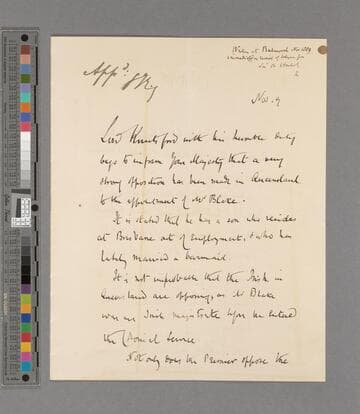 Appd.
Nov. 9
Lord Knutsford with his humble duty
begs to inform Your Majesty that a very
strong opposition has been made in Queensland
to the appointment of Mr Blake.
It is stated that he has a son who resides
at Brisbane out of employment, & who has
lately married a barmaid
It is not improbable that the Irish in
Queensland are opposing, as Mr Blake
was an Irish magistrate before he entered
the Colonial Service.
Not only does the Premier oppose the